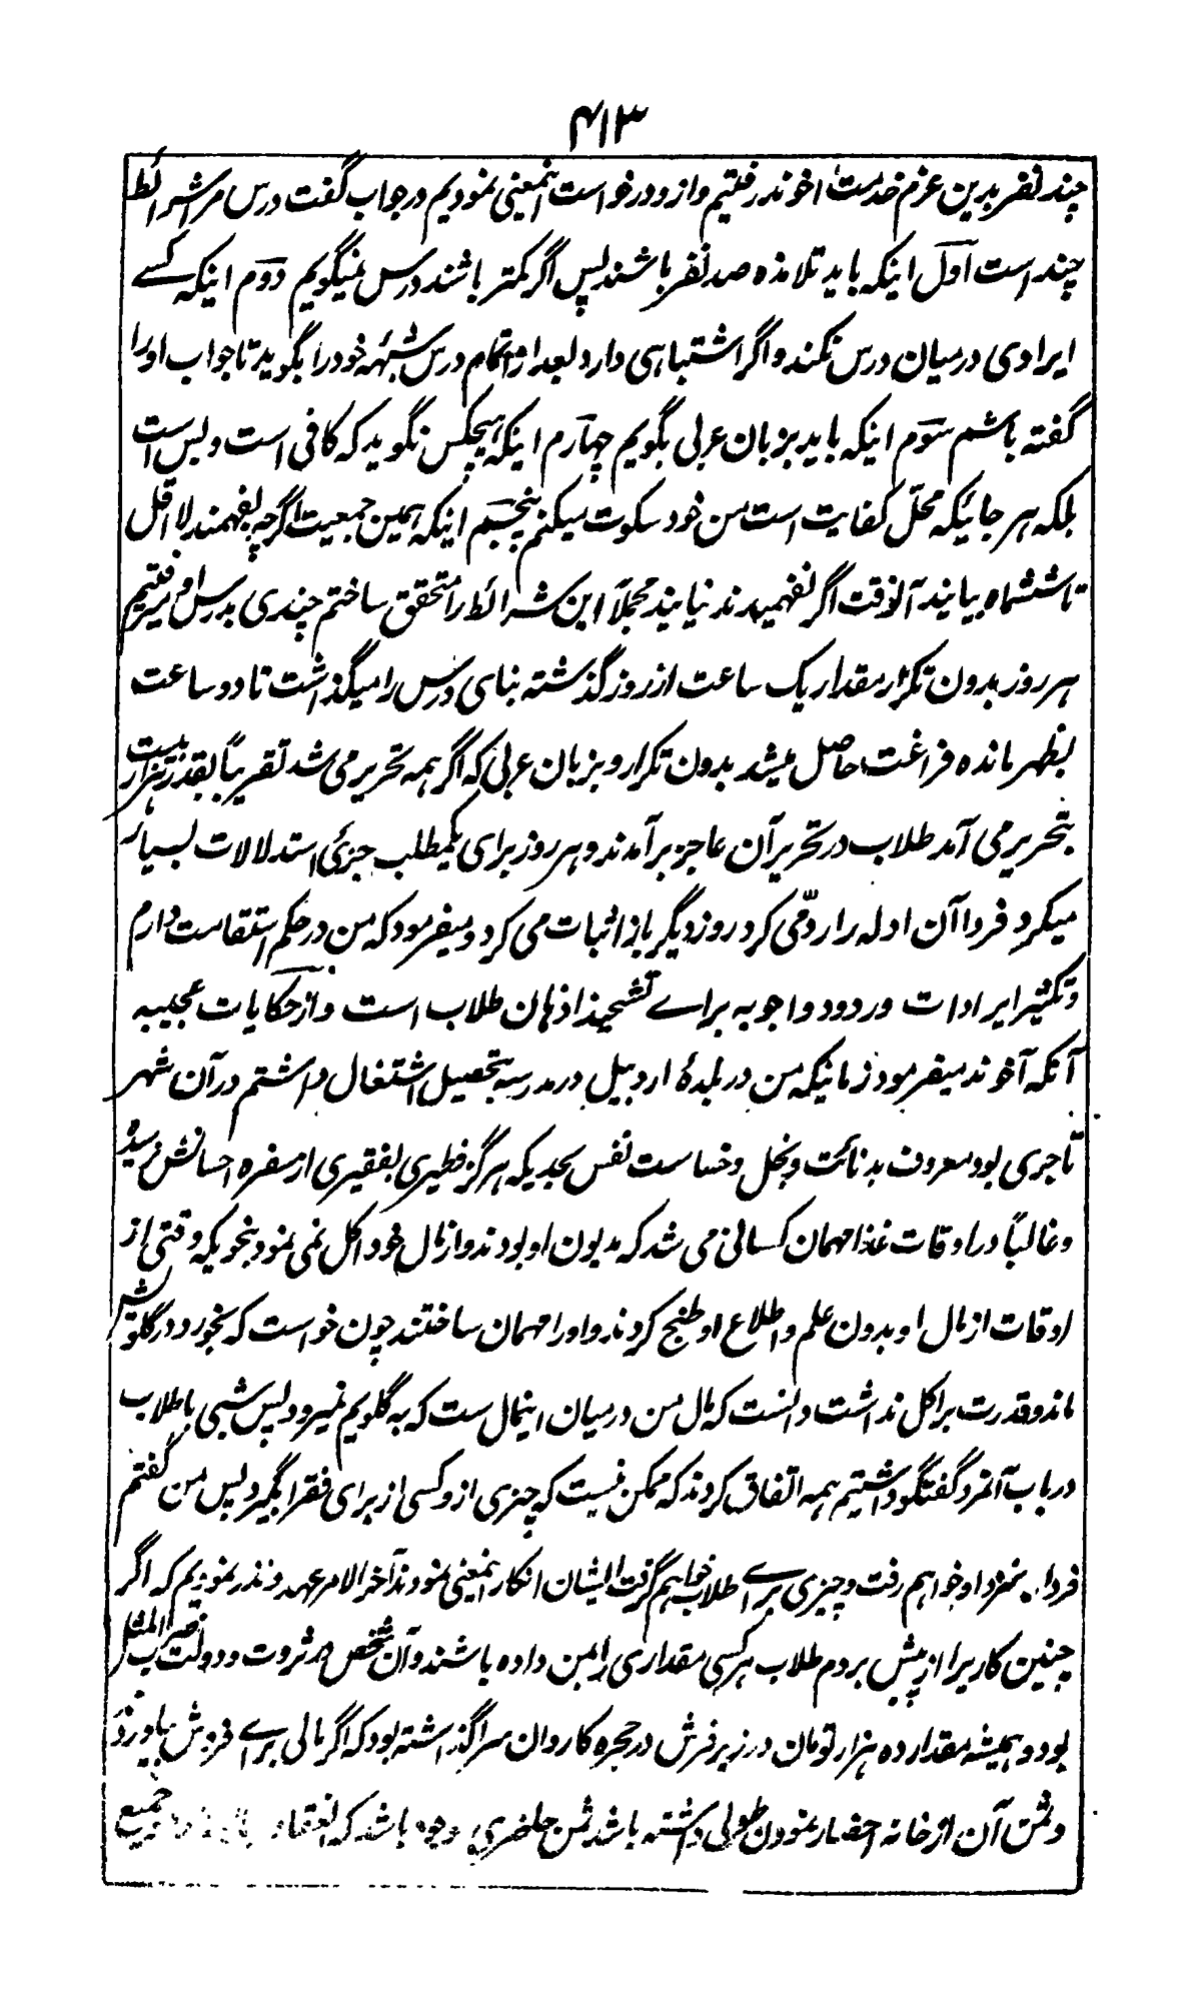 ۴۱۳
چند نفر بدین عزم خدمت اخوند رفتیم و ازو درخواست اینمعنی نمودیم در جواب گفت درس مرا شرائط
چند است اول اینکه باید تلامذه صد نفر باشند پس اگر کمتر باشند درس نمیگویم دوم اینکه کسے
ایرادی در میان درس نکند و اگر اشتباهی دارد بعد از اتمام درس شبهه خود را بگوید تا جواب او را
گفته باشم سوم اینکه باید بزبان عربی بگویم چهارم اینکه هیچکس نگوید که کافی است و بس است
بلکه هر جائیکه محل کفایت است من خود سکوت میکنم پنجم اینکه همین جمعیت اگرچه نفهمند لا اقل
تا ششماه بیایند آنوقت اگر نفهمیدند نیایند مجملاً این شرائط را متحقق ساختم چندی بدرس او میرفتیم
هر روز بدون تکرار مقدار یک ساعت از روز گذشته بنای درس را میگذاشت تا دو ساعت
بظهر مانده فراغت حاصل میشد بدون تکرار و بزبان عربی که اگر همه تحریر می شد تقریباً بقدر هزار بیت
بتحریر می آمد طلاب در تحریر آن عاجز برآمدند و هر روز برای یکمطلب جزئی استدلالات بسیار
میکرد و فردا آن ادله را رد می کرد روز دیگر باز اثبات می کرد و میفرمود که من در حکم استقامت دارم
و تکثیر ایرادات و ردود و اجوبه براے تشحیذ اذهان طلاب است و از حکایات عجیبه
آنکه آخوند میفرمود زمانیکه من در بلدۀ اردبیل در مدرسه بتحصیل اشتغال داشتم در آن شهر
تاجری بود معروف بدنائت و بخل و خساست نفس بحدیکه هرگز فطیری بفقیری از سفره احسانش نرسیده
و غالباً در اوقات غذا مهمان کسانی می شد که مدیون او بودند و از مال خود اکل نمی نمود بنحویکه وقتی از
اوقات از مال او بدون علم و اطلاع او طبخ کردند و او را مهمان ساختند چون خواست که بخورد در گلویش
ماند و قدرت بر اکل نداشت دانست که مال من در میان اینمال ست که به گلویم نمیرود پس شبی با طلاب
در باب آنمرد گفتگو داشتیم همه اتفاق کردند که ممکن نیست که چیزی ازو کسی از برای فقرا بگیرد پس من گفتم
فردا بنزد او خواهم رفت و چیزی براے طلاب خواهم گرفت ایشان انکار اینمعنی نمودند آخر الامر عهد و نذر نمودیم که اگر
چنین کاریرا از پیش بردم طلاب هر کسی مقداری را بمن داده باشند و آن شخص در ثروت و دولت ضرب المثل
بود و همیشه مقدار ده هزار تومان در زیر فرش در حجره کاروان سرا گذاشته بود که اگر مالی براے فروش بیاورند
و ثمن آن از خانه احضار نمودن طولی داشته باشد ثمن حاضری وجود باشد که انعقاد جمیع